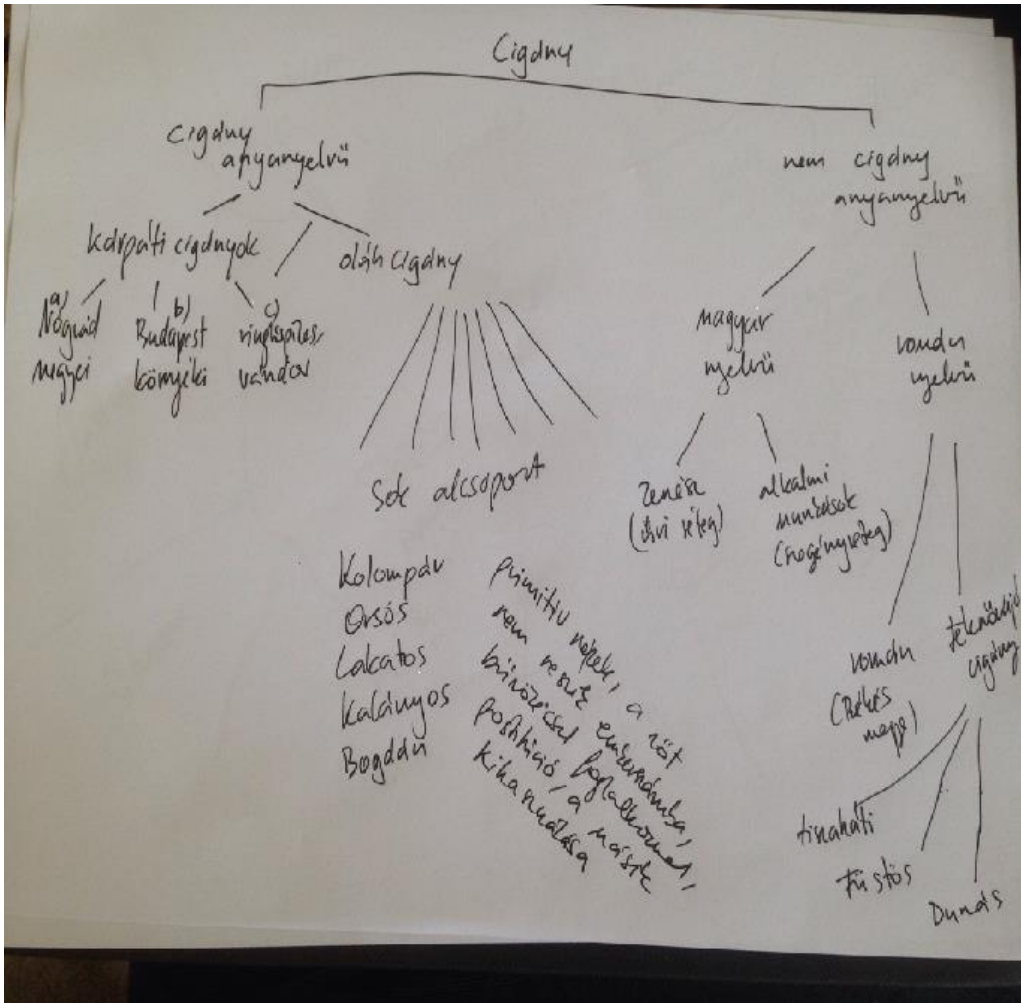 Cigány
cigány
anyanyelvű
nem cigány
anyanyelvű
kárpáti cigányok
oláh cigány
a)
Nógrád
megyei
b)
Budapest
környéki
c)
vándor
sok alcsoport
Kolompár
Orsós
Lakatos
Kalányos
Bogdán
primitív népek, a nőt
nem veszik emberszámba,
bűnözéssel foglalkoznak,
postitúció, a másik
kihasználása
magyar
nyelvű
zenész
(úri réteg)
alkalmi
munkások
(szegényréteg)
román
nyelvű
román
(Békés
megye)
teknővájó
cigány
tiszaháti
Füstös
Dunás